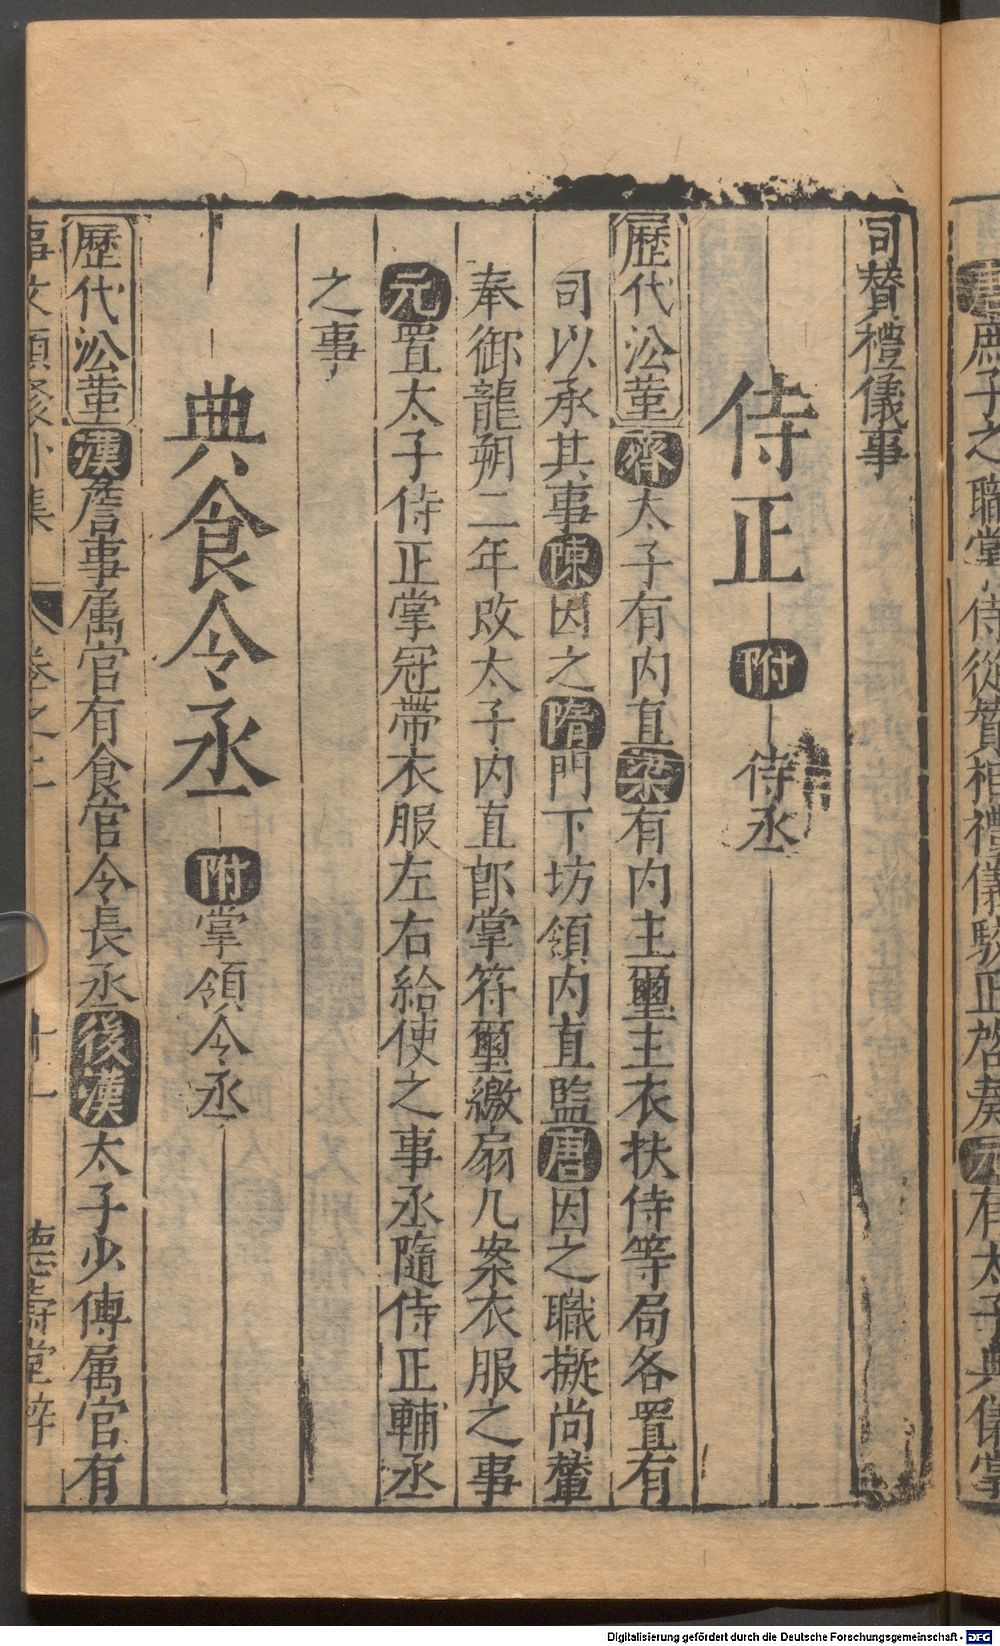 庶子之職掌侍從贊相禮儀駮正啓奏元有太子典儀掌
司賛禮儀事
侍正 附 侍丞
歷代沿革 齊太子有内直梁有内主璽主衣扶侍等局各置有
司以承其事陳因之隋門下坊領内直監唐因之職擬尚輦
奉御龍朔二年改太子内直郎掌符璽繖扇几案衣服之事
元置太子侍正掌冠帶衣服左右給使之事丞隨侍正輔丞
之事
典食令丞 附 掌領令丞
歷代沿革 漢詹事属官有食官令長丞後漢太子少傅属官有
事文類聚外集 卷之二 十一 德壽堂梓
Digitalisierung gefördert durch die Deutsche Forschungsgemeinschaft - DFG